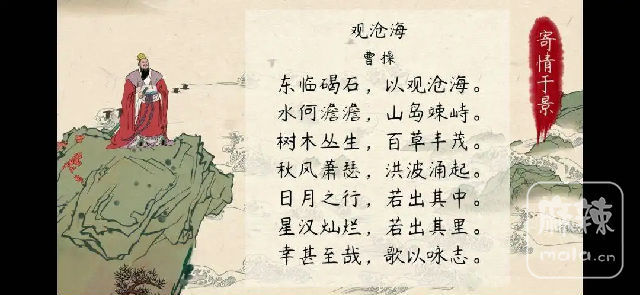 观沧海
曹操
东临碣石，以观沧海。
水何澹澹，山岛竦峙。
树木丛生，百草丰茂。
秋风萧瑟，洪波涌起。
日月之行，若出其中。
星汉灿烂，若出其里。
幸甚至哉，歌以咏志。
寄情于景
麻辣
mala.cn